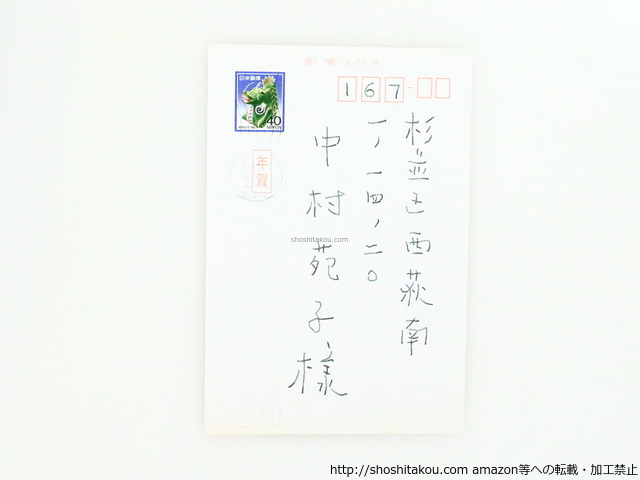 郵便はがき
日本郵便
40
NIPPON
年賀
167
杉並区西荻南
一ノ一四ノ二〇
中村苑子様
shoshitakou.com
http://shoshitakou.com amazon等への転載・加工禁止